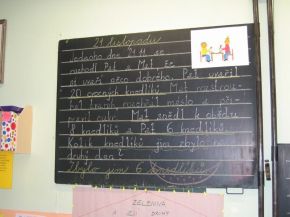 21. listopadu
Jednoho dne se
rozhodl Pat a Mat že
si uvaří něco dobrého. Pat uvařil
20 ovocných knedlíků. Mat nastrou-
hal tvaroh, rozpustil máslo a při-
pravil cukr. Mat snědl k obědu
8 knedlíků a Pat 6 knedlíků.
Kolik knedlíků jim zbylo na
druhý den?
Zbylo jim 6 knedlíků.
ZELENINA
A JEJÍ DRUHY